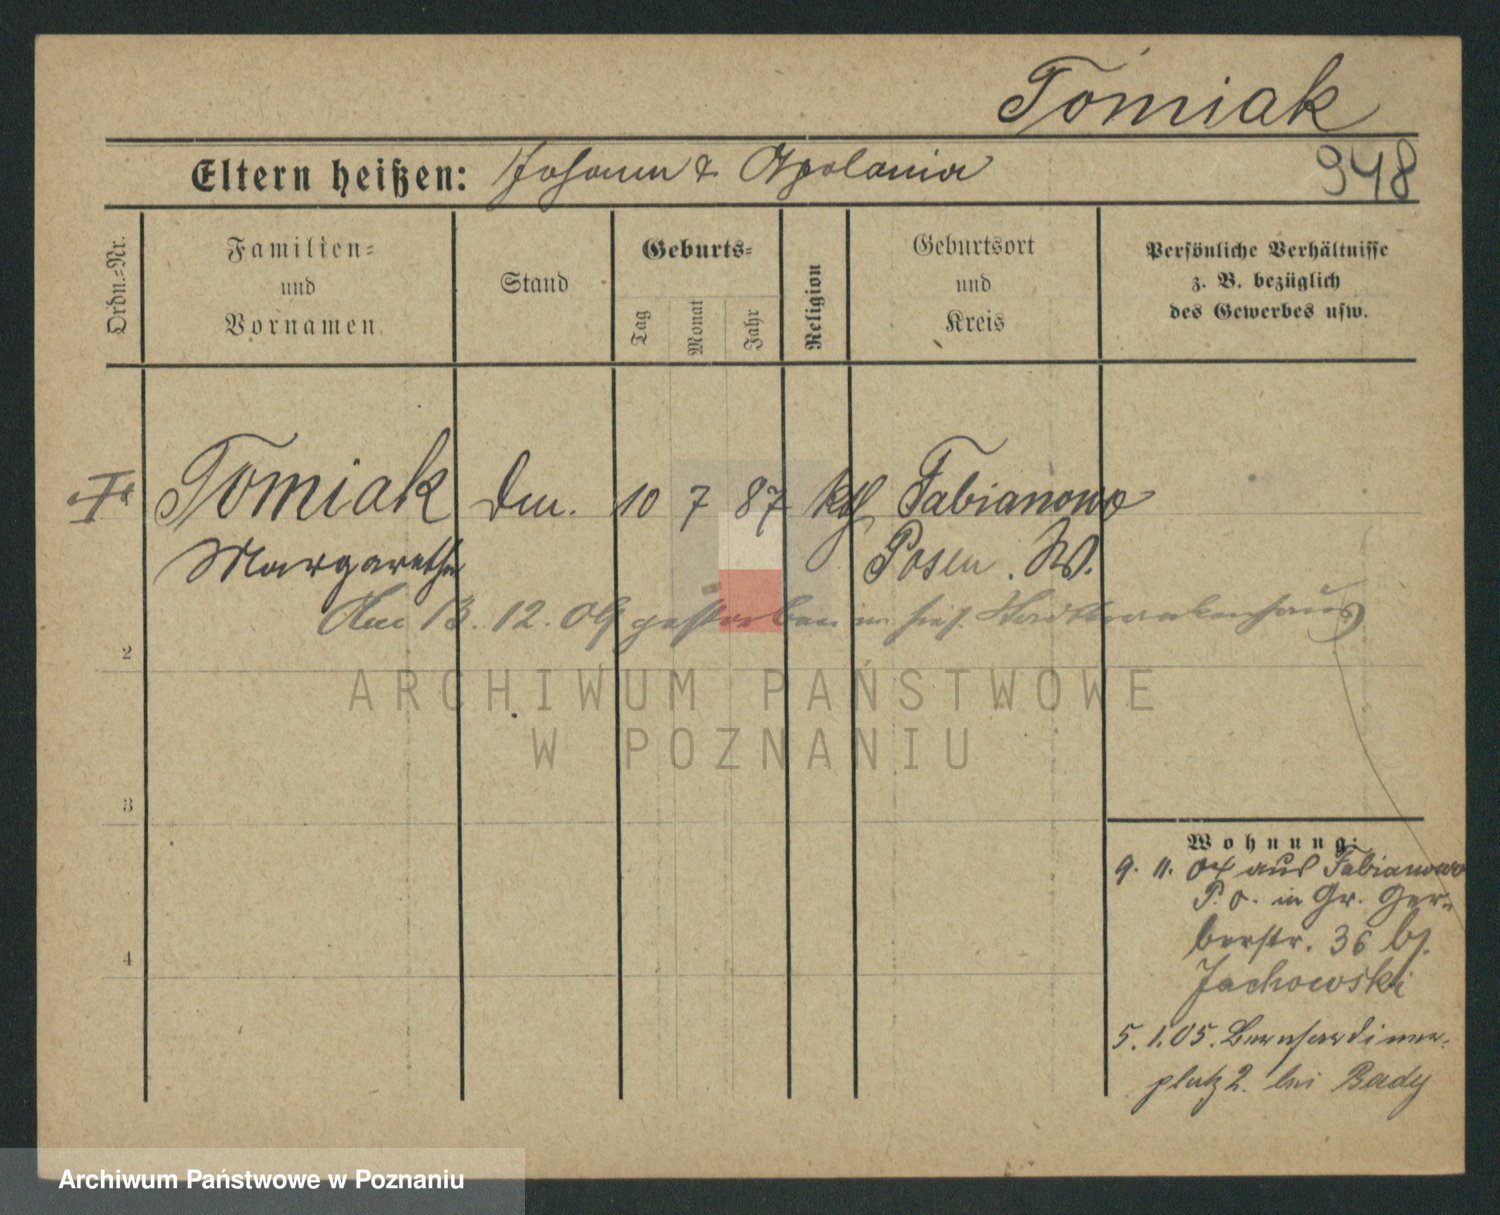 Tomiak
Eltern heißen: Johann & Apolonia
948
Ordn.=Nr.
Familien=
und
Vornamen
Stand
Geburts=
Tag
Monat
Jahr
Religion
Geburtsort
und
Kreis
Persönliche Verhältnisse
z. B. bezüglich
des Gewerbes usw.
Tomiak Dm. 10 7 87 kth Fabianowo
Margarethe Posen. W.
Am 13. 12. 09 gestorben im hies. Stadtkrankenhaus
2
3
4
Wohnung:
9. 11. 04 aus Fabianowo
P. O. in Gr. Ger=
berstr. 36 bs.
Jachowski
5. 1. 05. Bernhardiner=
platz 2. bei Bady
ARCHIWUM PAŃSTWOWE
W POZNANIU
Archiwum Państwowe w Poznaniu